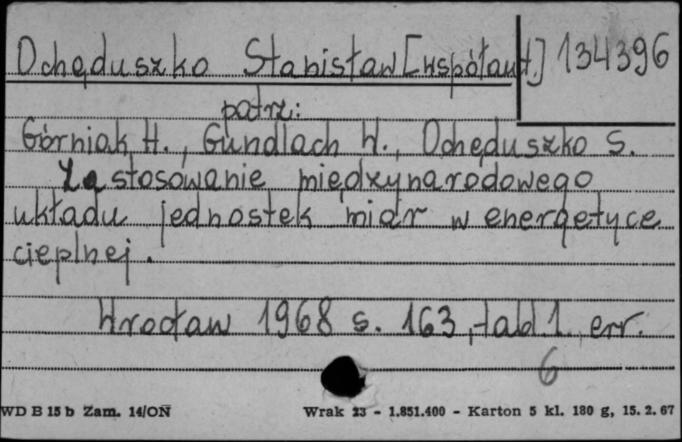 Ochęduszko Stanisław [współaut.] 134396
patrz:
Górniak H., Gundlach W., Ochęduszko S.
Zastosowanie międzynarodowego
układu jednostek miar w energetyce
cieplnej.
Wrocław 1968 s. 163, tabl 1, err.
6
WD B 15 b Zam. 14/ON Wrak 23 - 1.851.400 - Karton 5 kl. 180 g, 15. 2. 67